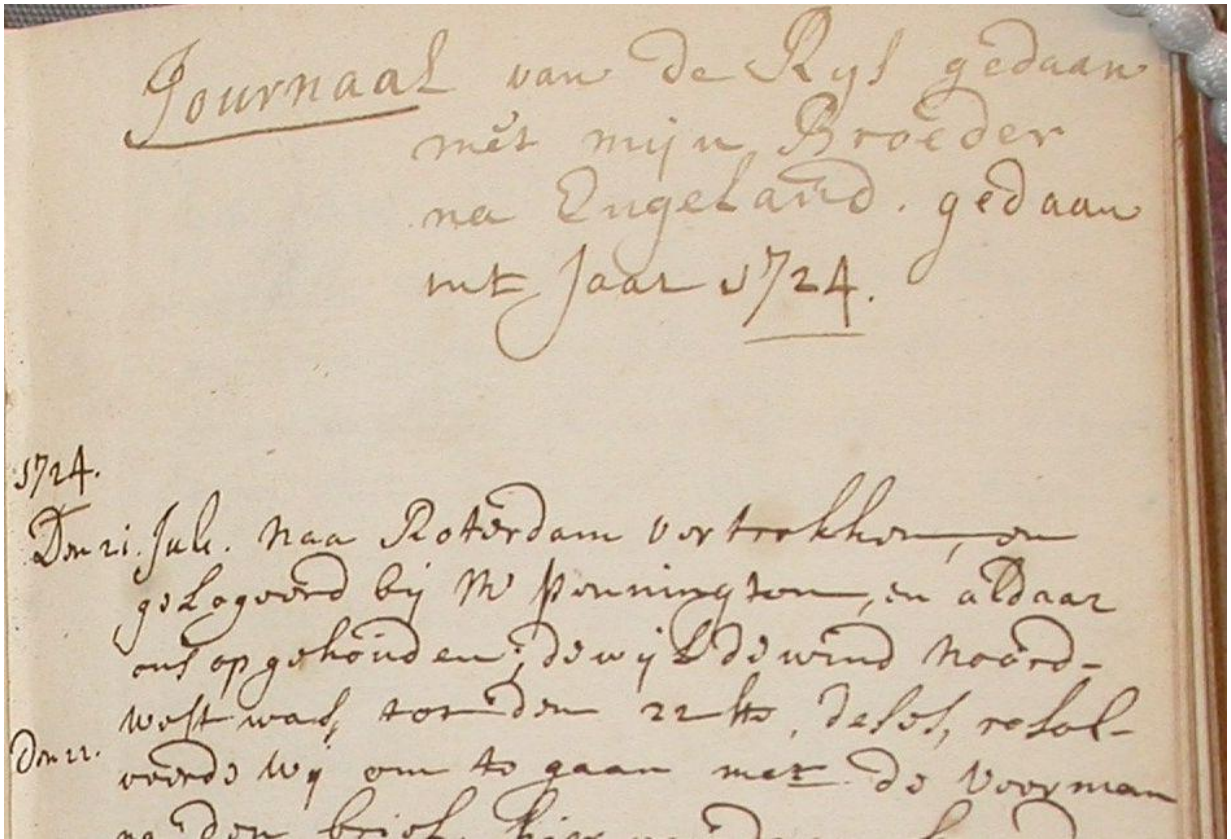 Journaal van de Rys gedaan
met mijn Broeder
na Engeland. gedaan
int Jaar 1724.
1724.
Den 21. Juli. naa Roterdam vertrokken, en
gelogeerd bij Mr Pennington, en aldaar
ons opgehouden; dewijl de wind noord-
west was, tot den 22ste, deses, resol-
Den 22.
veerde wij om te gaan met de Voorman
na den briel, hier